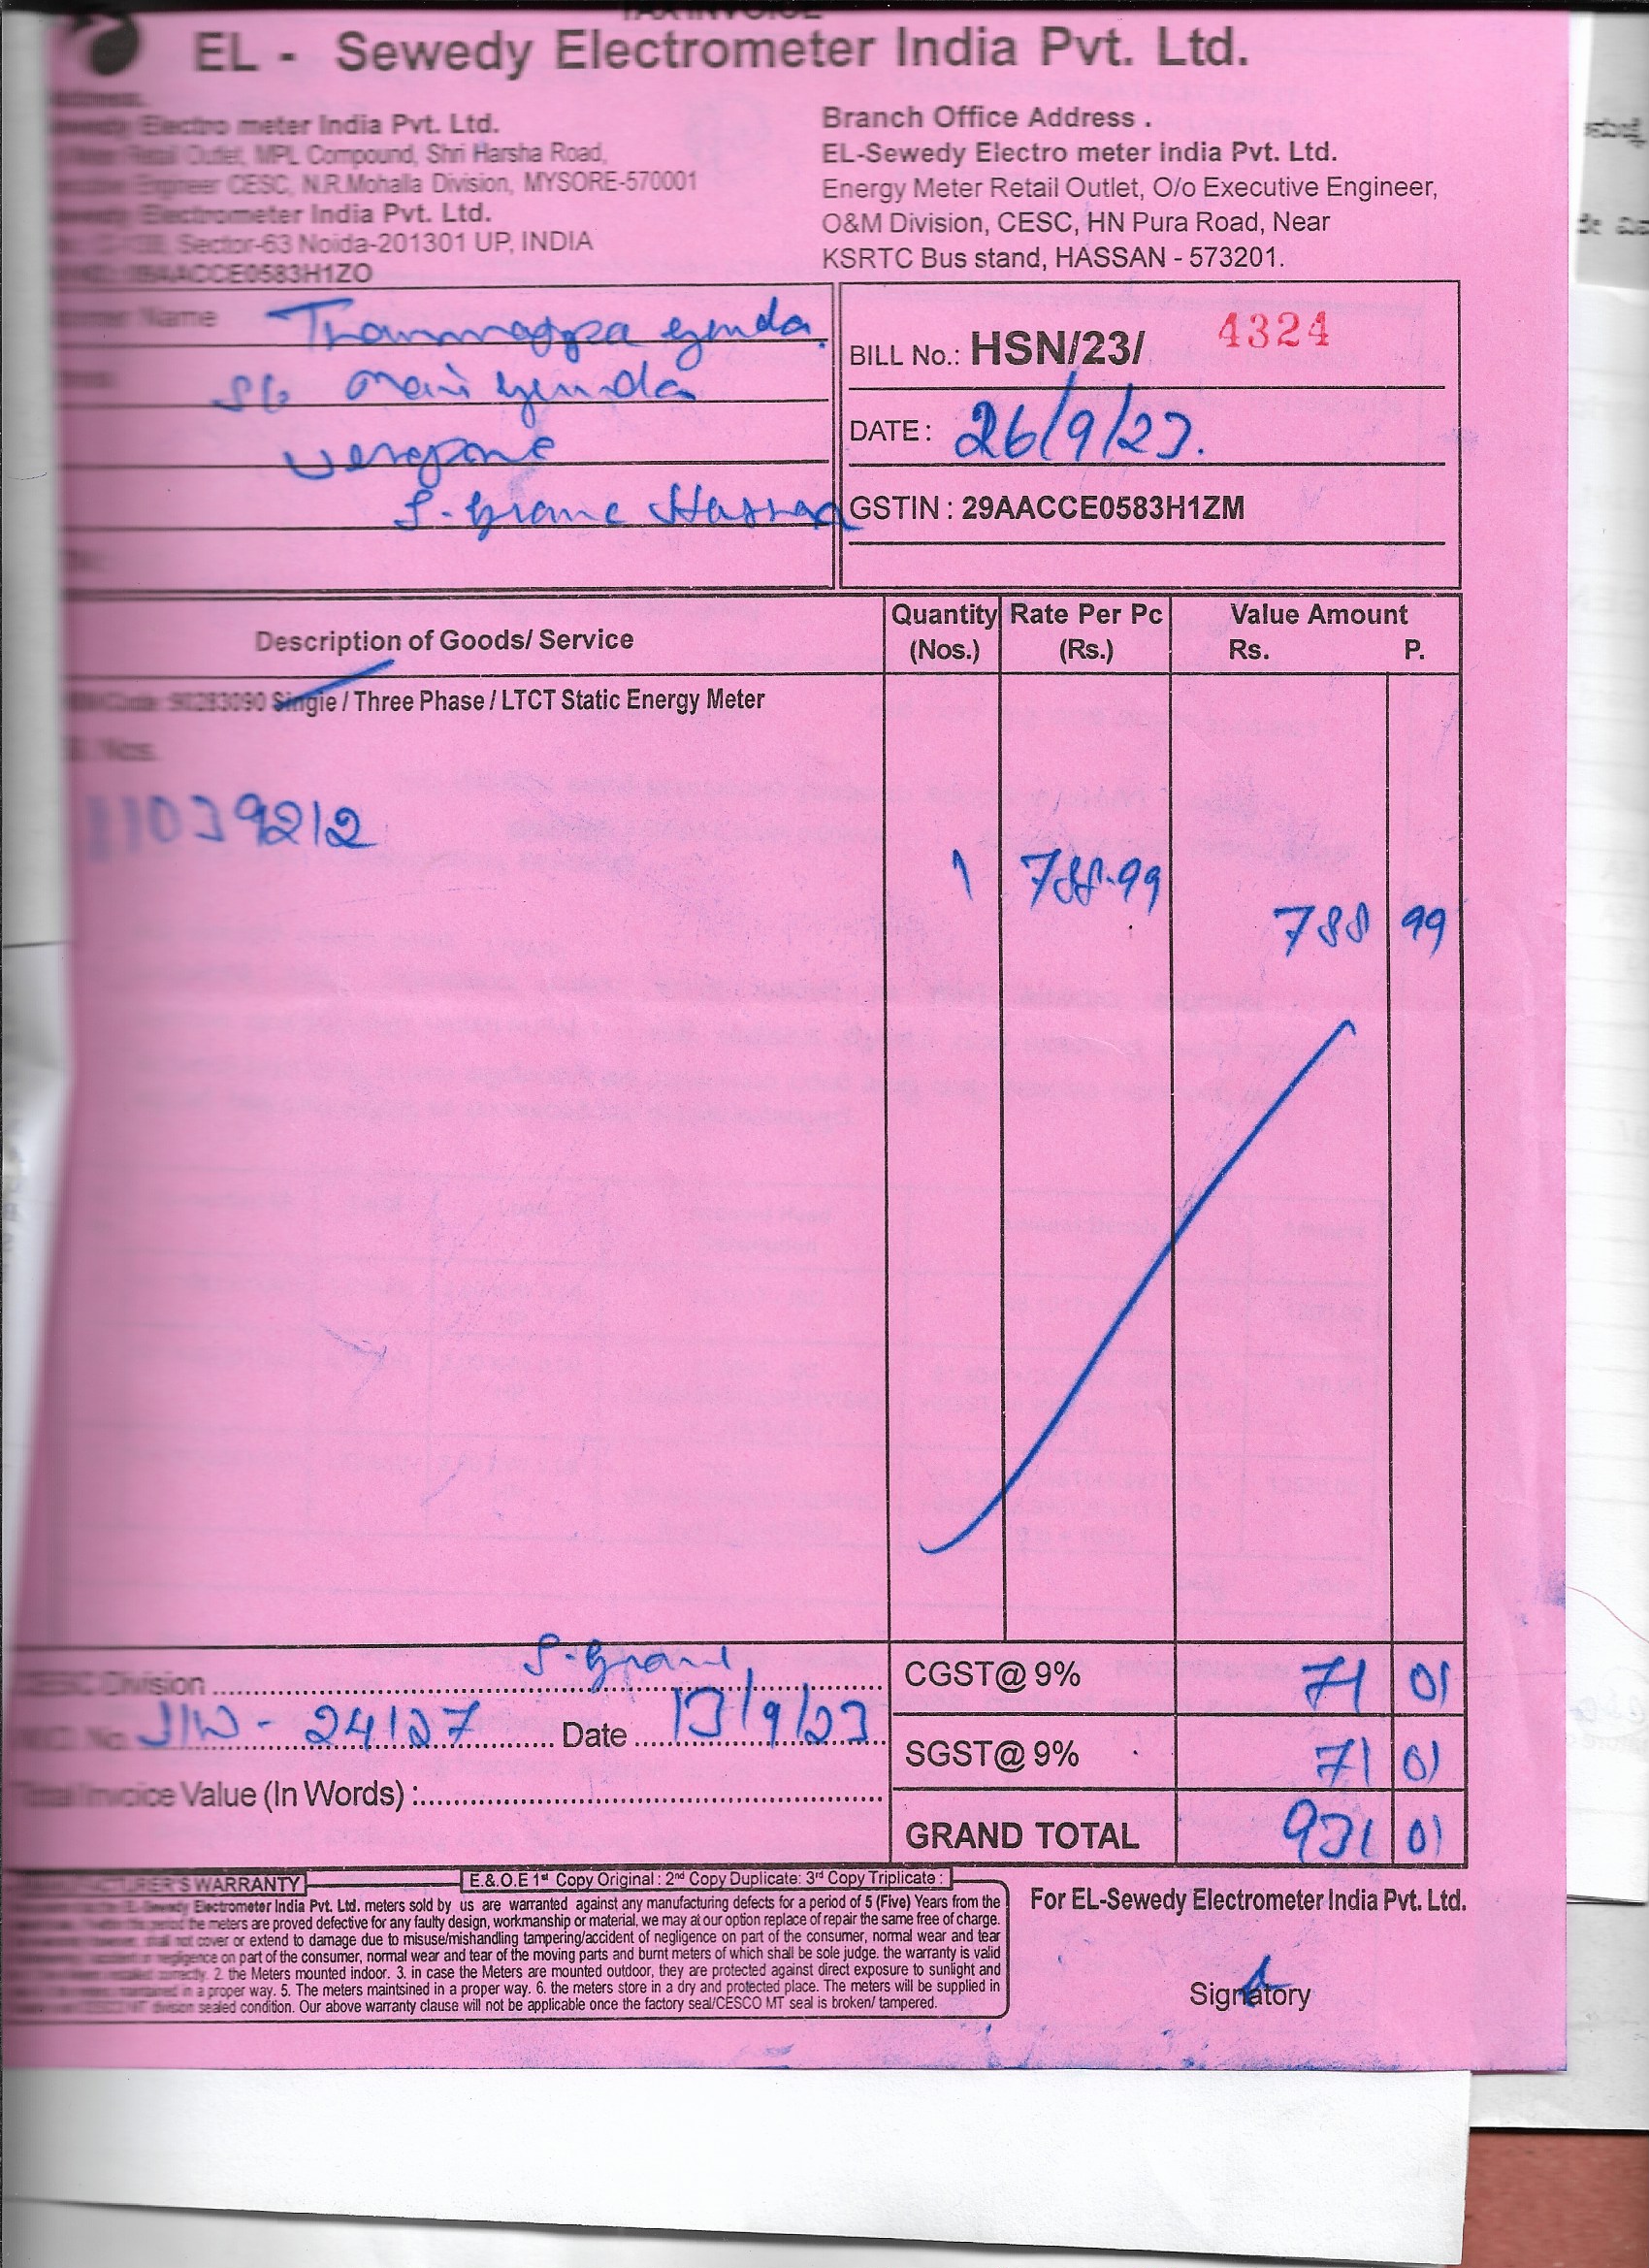 TAX INVOICE
EL - Sewedy Electrometer India Pvt. Ltd.
Electro meter India Pvt. Ltd.
Retail Outlet, MPL Compound, Shri Harsha Road,
Engineer CESC, N.R.Mohalla Division, MYSORE-570001
Electrometer India Pvt. Ltd.
Sector-63 Noida-201301 UP, INDIA
09AACCE0583H1ZO
Branch Office Address .
EL-Sewedy Electro meter India Pvt. Ltd.
Energy Meter Retail Outlet, O/o Executive Engineer,
O&M Division, CESC, HN Pura Road, Near
KSRTC Bus stand, HASSAN - 573201.
Name
BILL No.: HSN/23/ 4324
DATE : 26/9/23.
GSTIN : 29AACCE0583H1ZM
Hassan
Description of Goods/ Service
Quantity (Nos.)
Rate Per Pc (Rs.)
Value Amount
Rs. P.
Code: 90283090 Single / Three Phase / LTCT Static Energy Meter
Nos.
11039212
1 788.99 788 99
Division
No. Date 13/9/23
Total Invoice Value (In Words) :
CGST@ 9% 71 01
SGST@ 9% 71 01
GRAND TOTAL 931 01
MANUFACTURER'S WARRANTY
E.&.O.E 1st Copy Original : 2nd Copy Duplicate: 3rd Copy Triplicate :
Electrometer India Pvt. Ltd. meters sold by us are warranted against any manufacturing defects for a period of 5 (Five) Years from the
the meters are proved defective for any faulty design, workmanship or material, we may at our option replace of repair the same free of charge.
shall not cover or extend to damage due to misuse/mishandling tampering/accident of negligence on part of the consumer, normal wear and tear
negligence on part of the consumer, normal wear and tear of the moving parts and burnt meters of which shall be sole judge. the warranty is valid
correctly. 2. the Meters mounted indoor. 3. in case the Meters are mounted outdoor, they are protected against direct exposure to sunlight and
in a proper way. 5. The meters maintsined in a proper way. 6. the meters store in a dry and protected place. The meters will be supplied in
division sealed condition. Our above warranty clause will not be applicable once the factory seal/CESCO MT seal is broken/ tampered.
For EL-Sewedy Electrometer India Pvt. Ltd.
Signatory